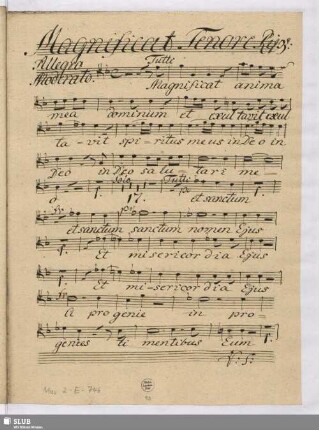 Magnificat. Tenore Rip:
Allegro
Moderato. Tutte
Magnificat anima
mea dominum et exultavit exul
ta-vit spi-ritus meus in Deo in
Deo in Deo sa lu-tari me-
Solo Tutti
o 17. et sanctum
et sanctum sanctum nomen Ejus
Et misericordia Ejus
Et mi-sericordia Ejus
a progenie in pro-
genies ti mentibus Eum
V: S:
Mus 2-E-
SLUB